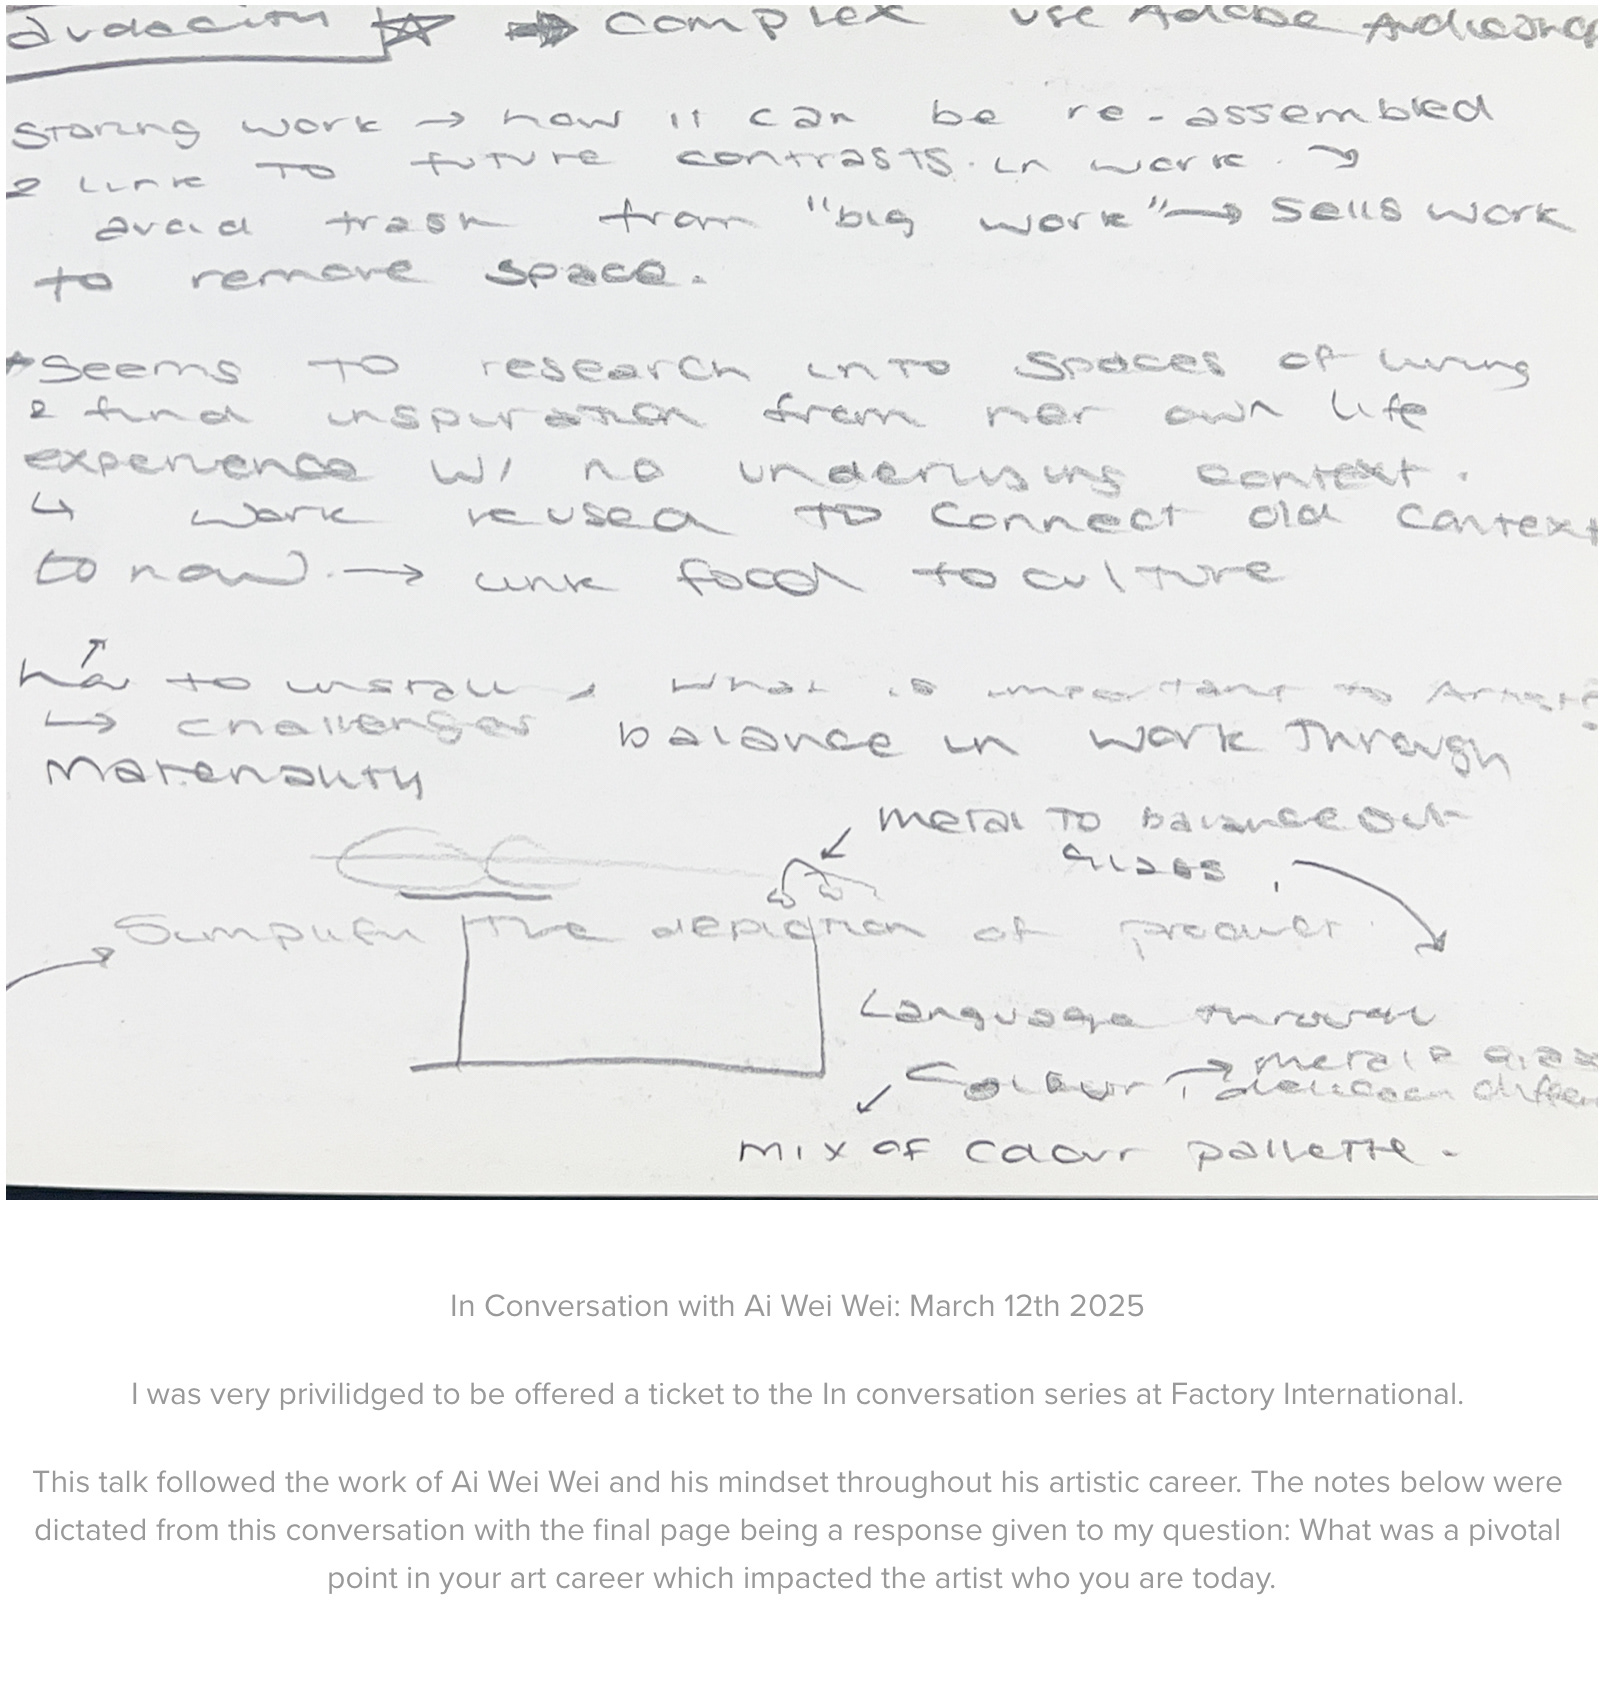 audacity → complex use Adobe
Storing work → how it can be re-assembled
& link to future contrasts. in work. ↘
avoid trash from "big work" → sells work
to remove space.
Seems to research into spaces of living
& find inspiration from her own life
experience w/ no underlying context.
↳ work reused to connect old context
to now. → link food to culture
↗
how to install, what is important to Artist?
↳ challenges balance in work through
Materiality
↙ metal to balance out
glass
Simplify the depiction of product.
Language through
Colour → metal & glass
between differ
↙
mix of colour pallette.
In Conversation with Ai Wei Wei: March 12th 2025
I was very privilidged to be offered a ticket to the In conversation series at Factory International.
This talk followed the work of Ai Wei Wei and his mindset throughout his artistic career. The notes below were
dictated from this conversation with the final page being a response given to my question: What was a pivotal
point in your art career which impacted the artist who you are today.